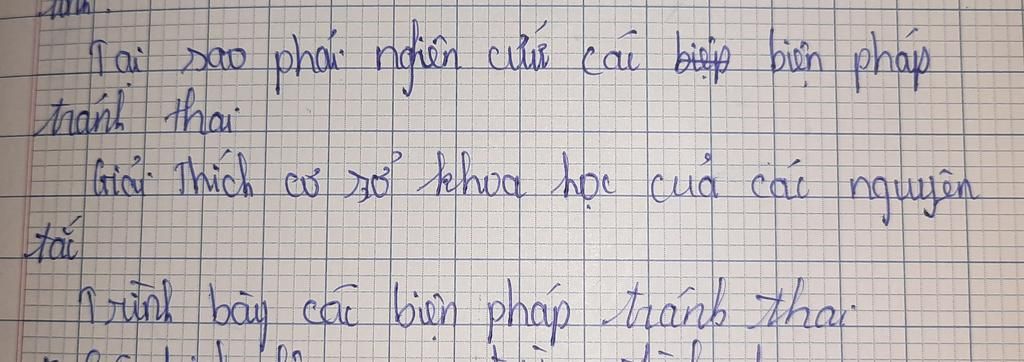 Tại sao phải nghiên cứu các biện pháp
tránh thai
Giải thích cơ sở khoa học của các nguyên
tắc
Trình bày các biện pháp tránh thai